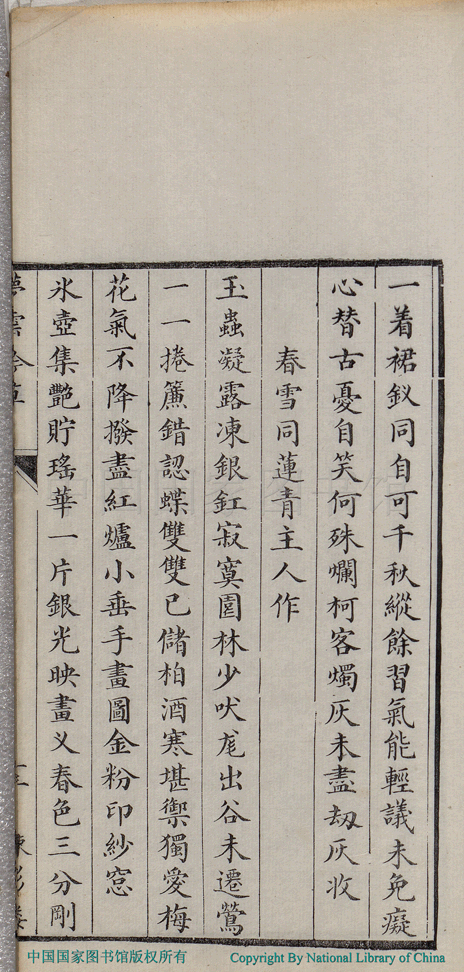 一着裙釵同自可千秋縱餘習氣能輕議未免癡
心替古憂自笑何殊爛柯客燭灰未盡劫灰收
春雪同蓮青主人作
玉蟲凝露凍銀釭寂寞園林少吠尨出谷未遷鶯
一一捲簾錯認蝶雙雙已儲柏酒寒堪禦獨愛梅
花氣不降撥盡紅爐小垂手畫圖金粉印紗窓
氷壺集艷貯瑤華一片銀光映畫乂春色三分剛
中国国家图书馆版权所有
Copyright By National Library of China